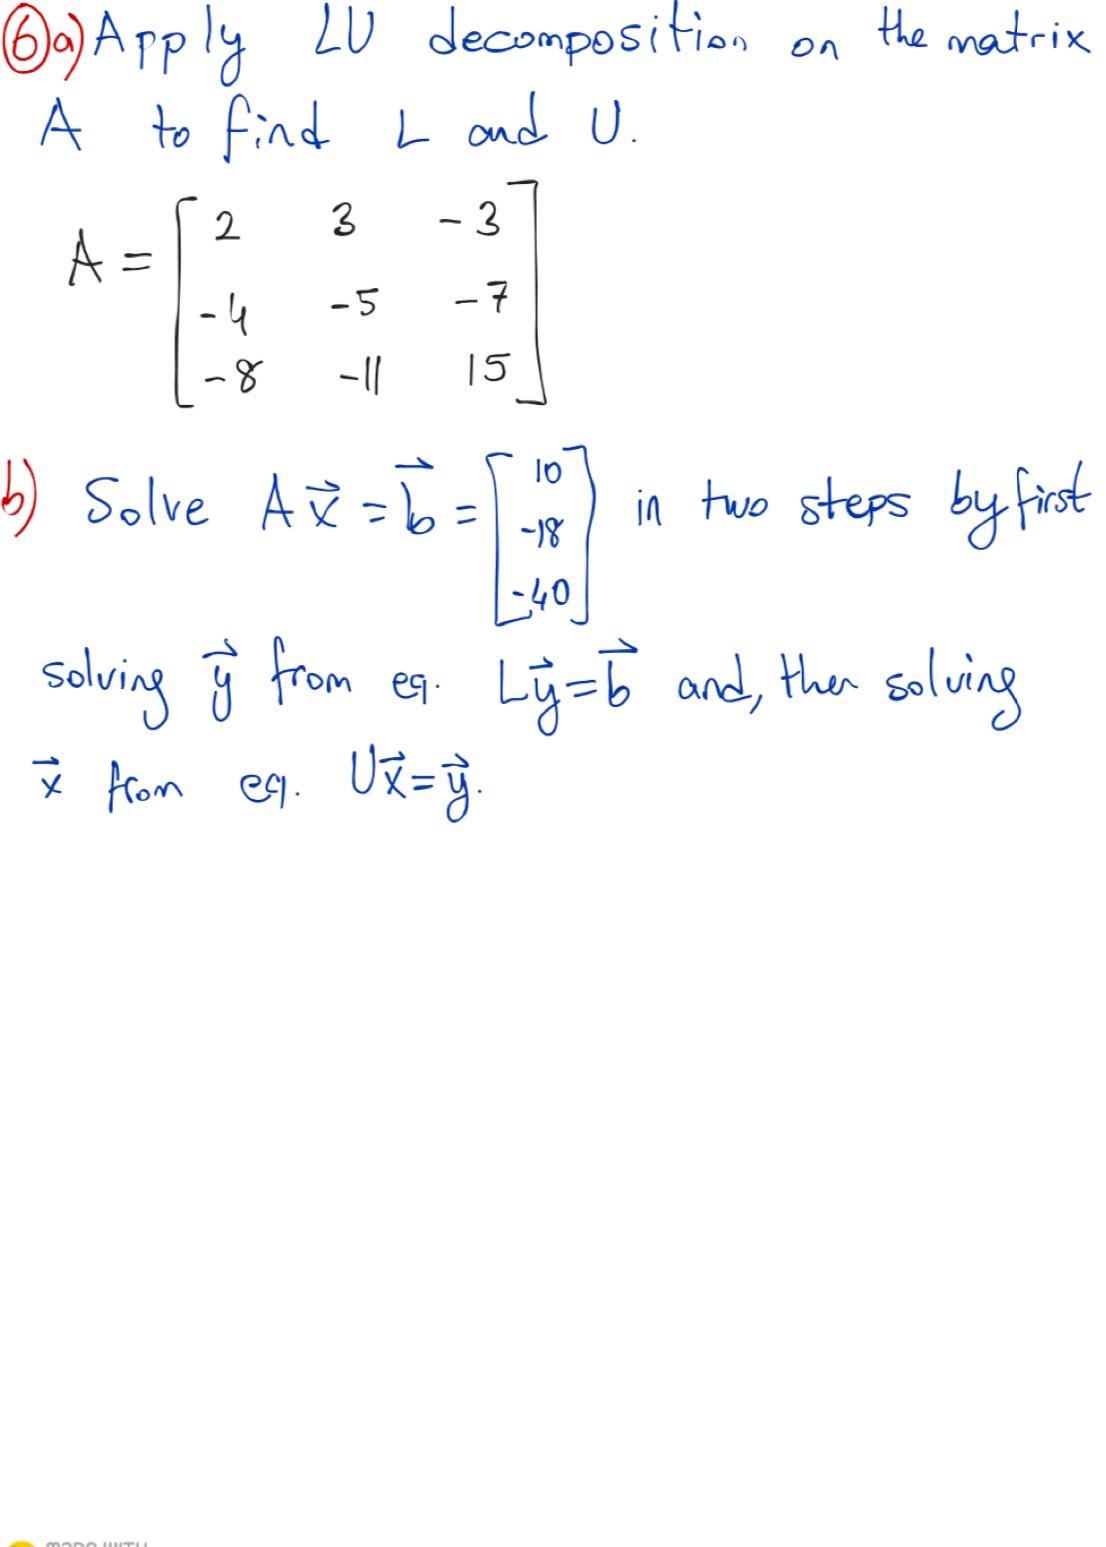 6 a) Apply LU decomposition on the matrix
A to find L and U.
A = [ 2 3 -3
-4 -5 -7
-8 -11 15 ]
b) Solve Ax⃗ = b⃗ = [ 10 -18 -40 ] in two steps by first
solving y⃗ from eq. Ly⃗=b⃗ and, then solving
x⃗ from eq. Ux⃗=y⃗.
MADE WITH